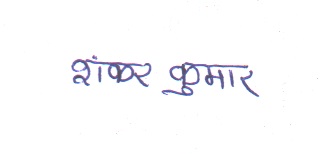 शंकर कुमार